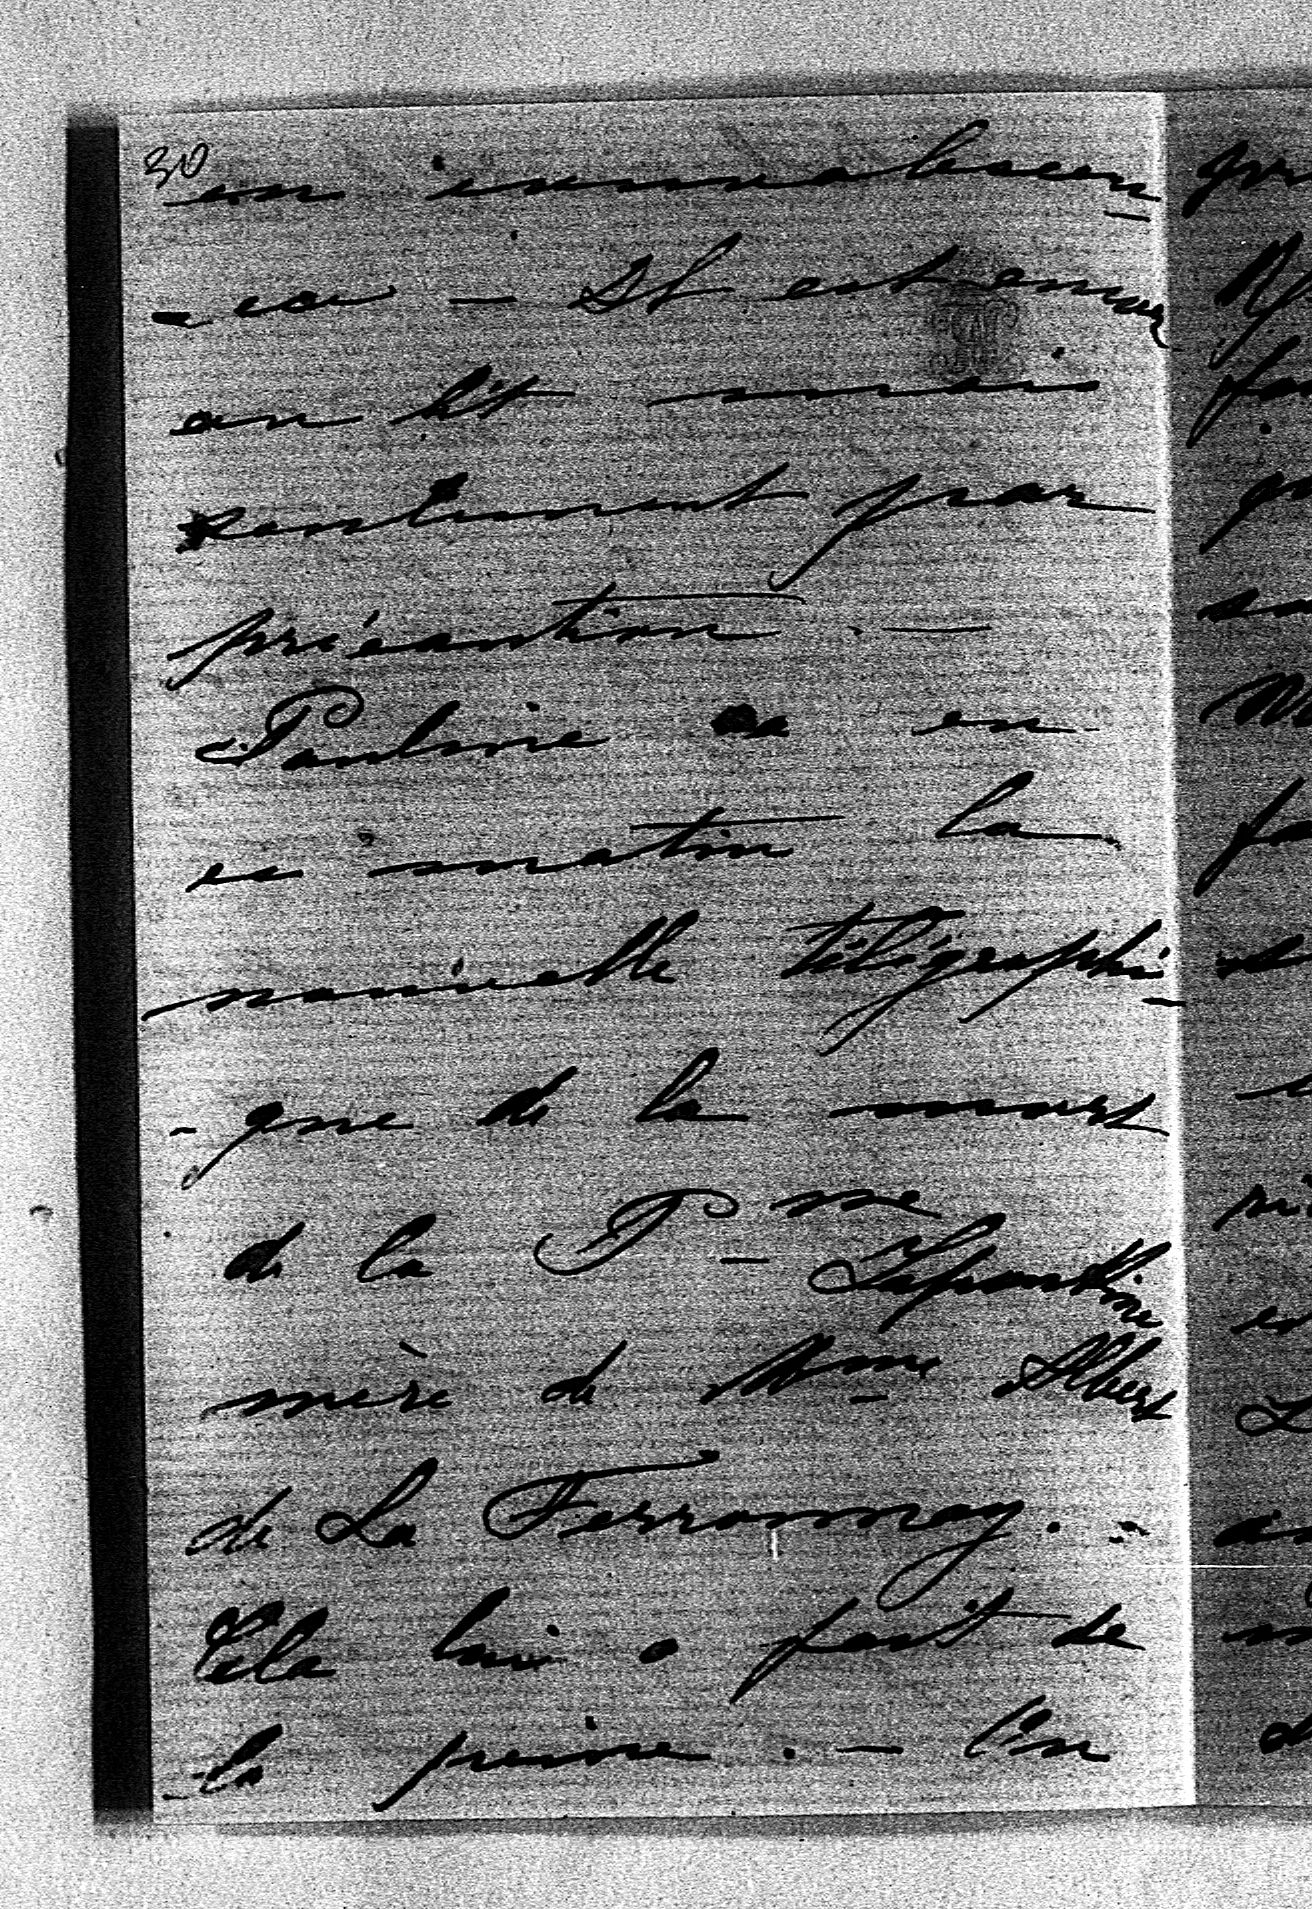 30
en convalescen
-ce - Il est encore
au lit mais
seulement par
précaution. -
Pauline a eu
ce matin la
nouvelle télégraphi
-que de la mort
de la Pme Lapoukhine
mère de Mme Albert
de La Ferronnay. -
Cela lui a fait de
la peine. - Un